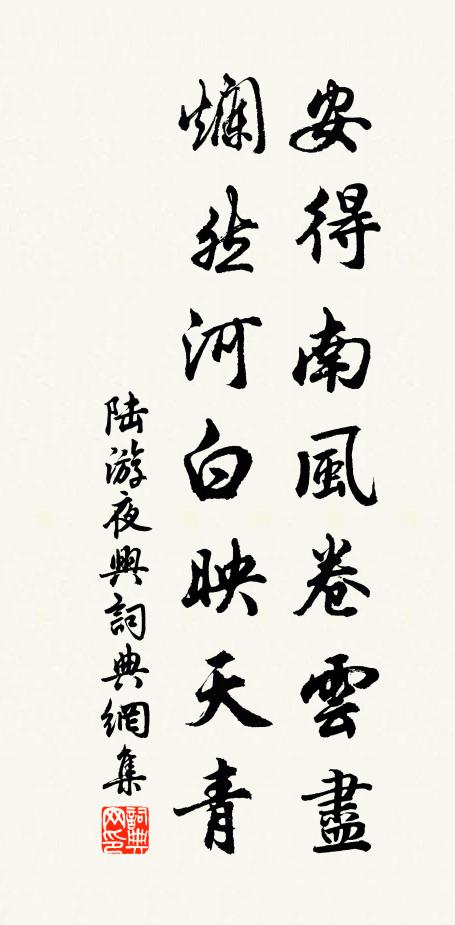 安得南風卷雲盡
爛然河白映天青
陆游夜興詞典網集
詞典网印